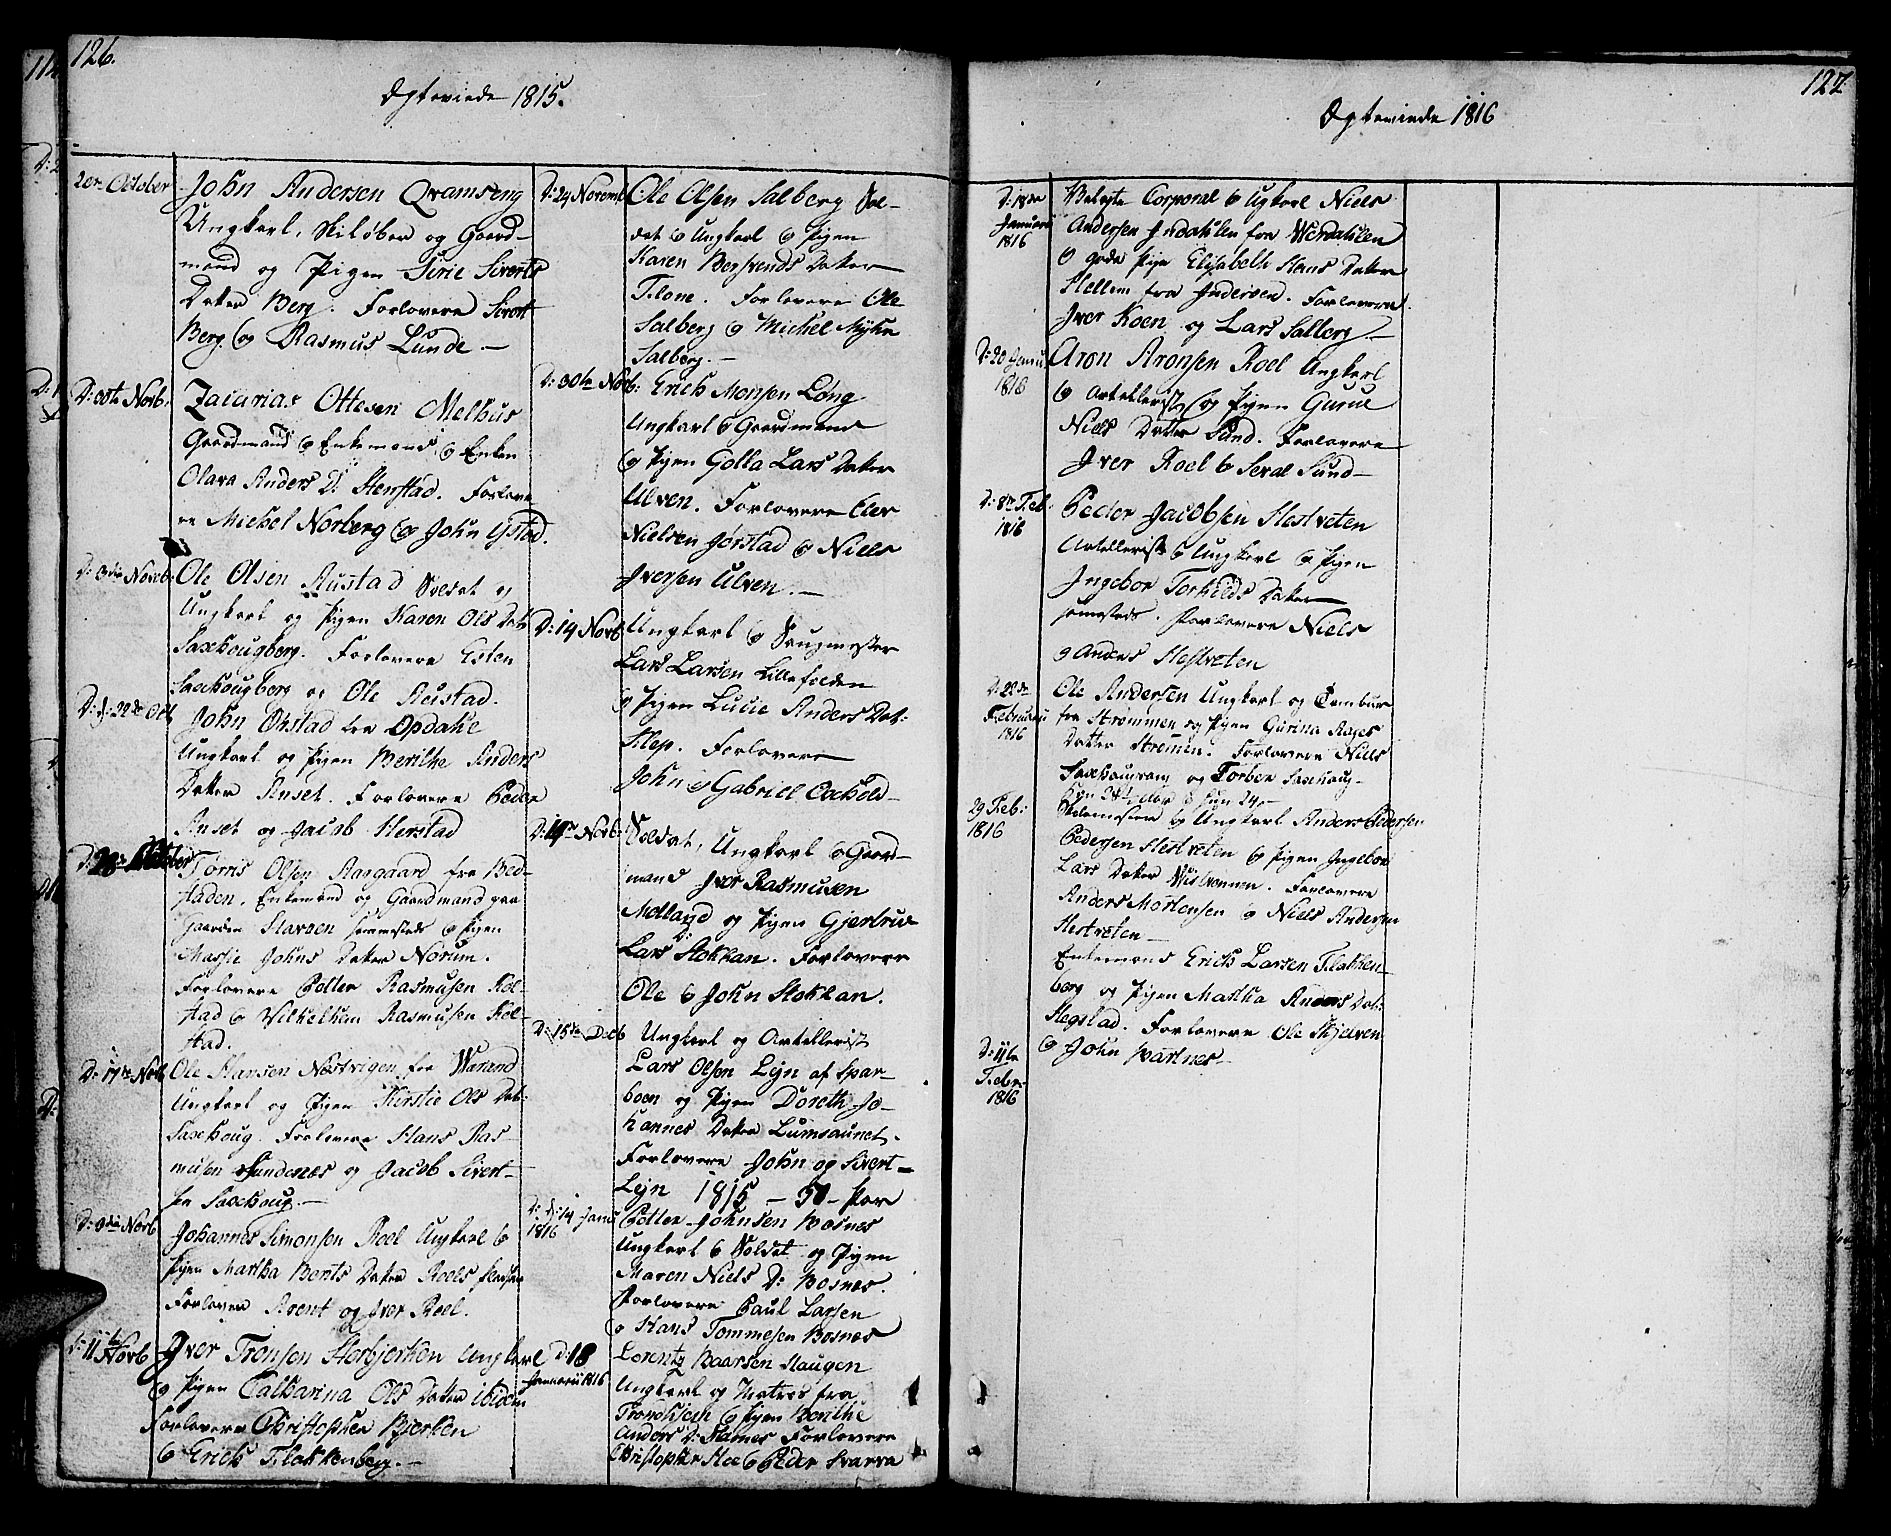 126.
Ægteviede 1815.
2den October
John Andersen Qvamseng
Ungkarl, Skiløber og Gaard-
mand og Pigen Sirie Siverts
Datter Berg. Forlovere Sivert
Berg og Rasmus Lunde –
D: 30te Novb:
Zacarias Ottesen Melhus
Gaardmand & Enkemand, & Enken
Olava Anders D: Henstad. Forlove
re Michel Norberg & John Ystad.
D: 3die Novb:
Ole Olsen Rustad Soldat og
Ungkarl og Pigen Karen Ols Dat:
Saxhougberg. Forlovere Esten
Saxhougberg og Ole Rustad.
D: 22de Oct
John Orstad fra Opdahl
Ungkarl og Pigen Berithe Anders
Datter Anset. Forlovere Peder
Anset og Jacob Herstad
D: 28de October
Tørris Olsen Aargaard fra Bed-
staden, Enkemand og Gaardmand paa
Gaarden Stavsen sammesteds & Pigen
Massie Johns Datter Norum.
Forlovere Petter Rasmusen Kol-
stad & Vilhelhem Rasmusen Kol-
stad.
D: 17de Novb
Ole Hansen Næstvigen fra Værand
Ungkarl og Pigen Kirstie Ols Dat:
Saxhoug. Forlovere Hans Ras-
musen Sundenæs og Jacob Sivert-
sen Saxhoug. –
D: 3die Novb
Johannes Simonsen Roel Ungkarl &
Pigen Martha Bents Datter Roels
Forlovere Arent og Iver Roel.
D: 11te Novb
Iver Tronsen Herbjerken Ungkarl
& Pigen Catharina Ols Datter ibidem
Forlovere Christopher Bjerken
& Erich Flokkenberg. –
D: 24 Novemb
Ole Olsen Salberg Sol-
dat & Ungkarl & Pigen
Karen Bersvends Datter
Tilone. Forlovere Ole
Salberg & Michel Myhre
Salberg. –
D: 30te Novb:
Erich Monsen Løng
Ungkarl & Gaardmand
& Pigen Golla Lars Datter
Ulven. Forlovere Eler
Nielsen Jørstad & Niels
Iversen Ulven. –
D: 14 Novb
Ungkarl & Saugmester
Lars Larsen Lillefolden
& Pigen Lucie Anders Dat:
Klep. Forlovere
John & Gabriel Oxhold –
D: 19de Novb:
Soldat, Ungkarl & Gaard-
mand Iver Rasmusen
Metland og Pigen Gjertrud
Lars D: Stokkan. Forlovere
Ole & John Stokkan.
D: 15de Decb
Ungkarl og Artellerist
Lars Olsen Lejn af Spar-
boen og Pigen Doreth Jo-
hannes Datter Lumsaunet.
Forlovere John og Sivert
Lejn 1815 – 50 – Par
D: 14 Janu 1816
Petter Johnsen Bosnes
Ungkarl & Soldat og Pigen
Maren Niels D: Bosnes.
Forlovere Paul Larsen
& Hans Tommesen Bosnes
D: 18 Januarii 1816
Lorentz Baarsen Haugen
Ungkarl og Matros fra
Trondhjem & Pigen Berithe
Anders D: Hamnes Forlovere
Christopher Hee & Peder Svarva
127
Ægteviede 1816
D: 18de Januarii 1816
Vælagte Corporal & Ugkarl Niels
Andersen Indahlen fra Werdahlen
& gode Pige Elisabeth Hans Datter
Hellem fra Inderøen. Forlovere
Iver Koen og Lars Salberg. –
D: 20 Janu: 1816
Aron Aronsen Roel Ungkarl
& Artellerist, & Pigen Gurue
Niels Datter Sund. Forlovere
Iver Roel & Seval Sund –
D: 8de Feb: 1816
Peder Jacobsen Hestveten
Artellerist & Ungkarl & Pigen
Ingebor Torkilds Datter
sammesteds. Forlovere Niels
& Anders Hestveten
D: 22de Februarii 1816
Ole Andersen Ungkarl og Tambur
fra Strømmen og Pigen Gurina Rages
Datter Stromen. Forlovere Niels
Saxhougvang og Torber Saxhoug-
han 24½ Aar & hun 24 –
29 Feb: 1816
Skolemester & Ungkarl Anders Pedersen
Pedersen Hestveten & Pigen Ingebor
Lars Datter Wistvennen. Forlovere
Anders Mortensen & Niels Andersen
Hestveten –
D: 11te Febr. 1816
Enkemand Erich Larsen Flokken-
berg og Pigen Martha Anders Dat:
Hegstad. Forlovere Ole Skjelven
& John Vartnes –